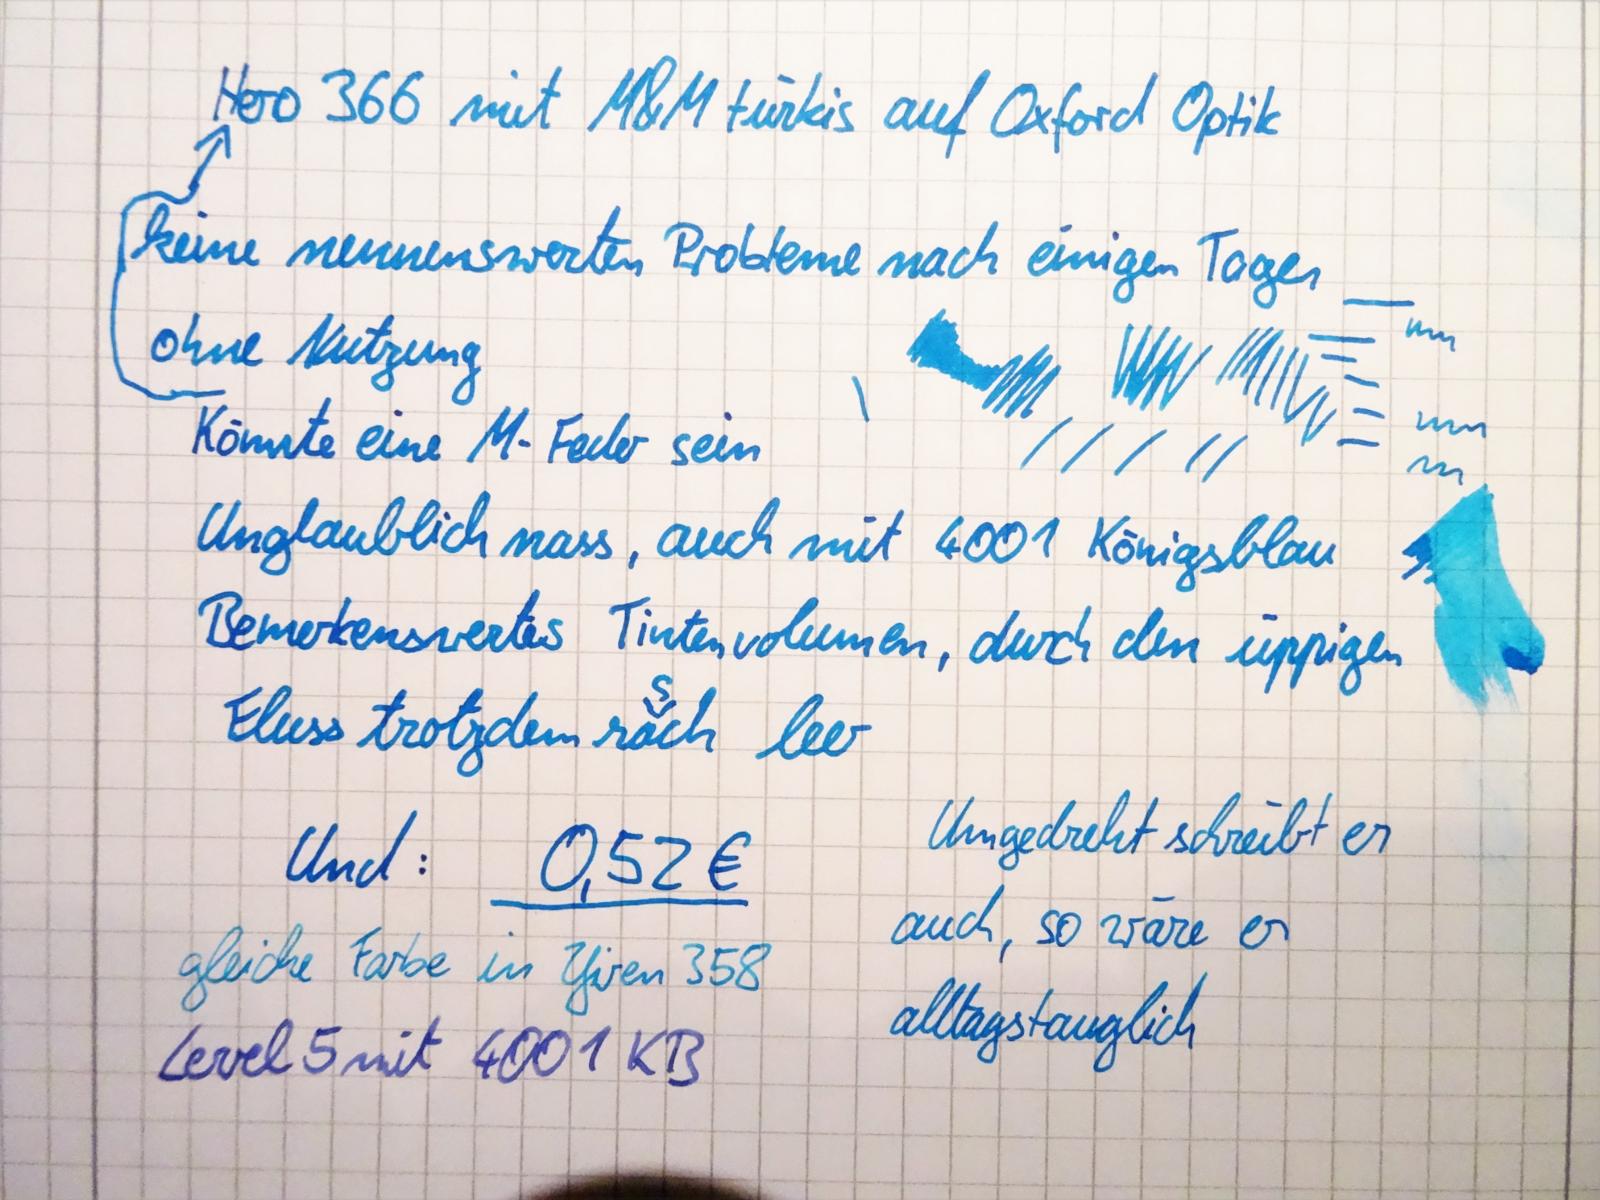 Hero 366 mit M&M türkis auf Oxford Optik
keine nennenswerten Probleme nach einigen Tagen
ohne Nutzung
Könnte eine M-Feder sein
Unglaublich nass, auch mit 4001 Königsblau
Bemerkenswertes Tintenvolumen, durch den üppigen
Fluss trotzdem rasch leer
Und: 0,52 €
gleiche Farbe in Yiren 358
Level 5 mit 4001 KB
Umgedreht schreibt er
auch, so wäre er
alltagstauglich